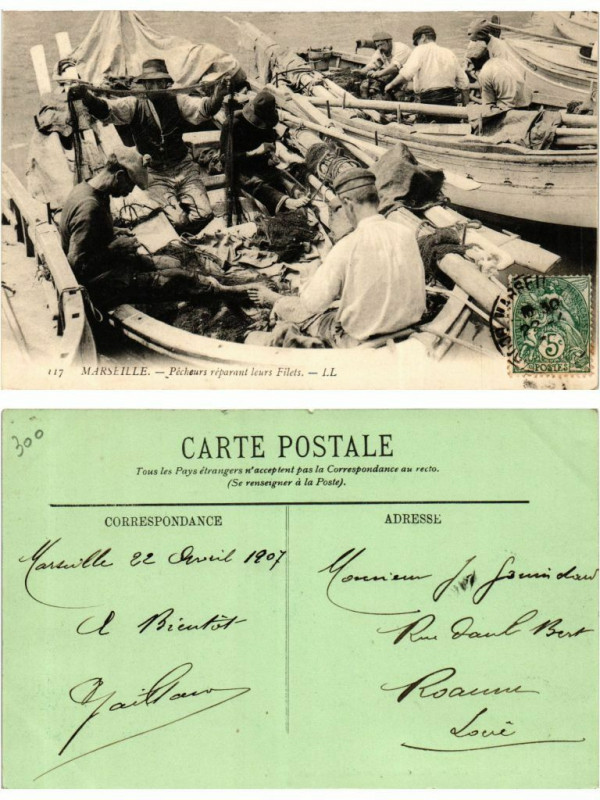 117 MARSEILLE. — Pêcheurs réparant leurs Filets. — LL
MARSEILLE
5c
POSTES
300
CARTE POSTALE
Tous les Pays étrangers n'acceptent pas la Correspondance au recto.
(Se renseigner à la Poste).
CORRESPONDANCE
ADRESSE
Marseille 22 Avril 1907
A Bientôt
Monsieur J.
Rue Paul Bert
Roanne
Loire